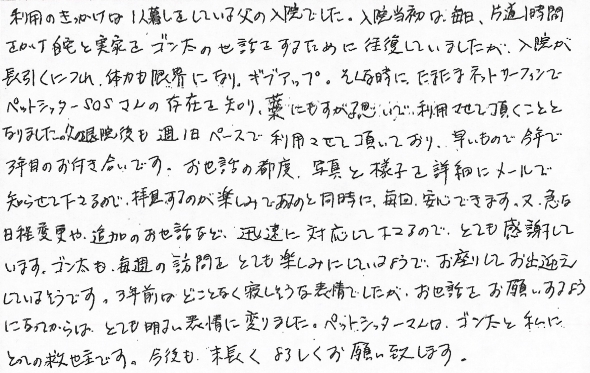 利用のきっかけは1人暮しをしている父の入院でした。入院当初は毎日、片道1時間
をかけ自宅と実家をゴン太のお世話をするために往復していましたが、入院が
長引くにつれ、体力も限界になり、ギブアップ。そんな時に、たまたまネットサーフィンで
ペットシッターSOSさんの存在を知り、藁にもすがる思いで、利用させて頂くことと
なりました。父の退院後も週1日ペースで利用させて頂いており、早いもので今年で
3年目のお付き合いです。お世話の都度、写真と様子を詳細にメールで
知らせて下さるので、拝見するのが楽しみであるのと同時に、毎回、安心できます。又、急な
日程変更や、追加のお世話など、迅速に対応して下さるので、とても感謝して
います。ゴン太も、毎週の訪問をとても楽しみにしているようで、お座りしてお出迎え
しているそうです。3年前はどことなく寂しそうな表情でしたが、お世話をお願いするよう
になってからは、とても明るい表情に変りました。ペットシッターさんは、ゴン太と私に
とっての救世主です。今後も、末長くよろしくお願い致します。